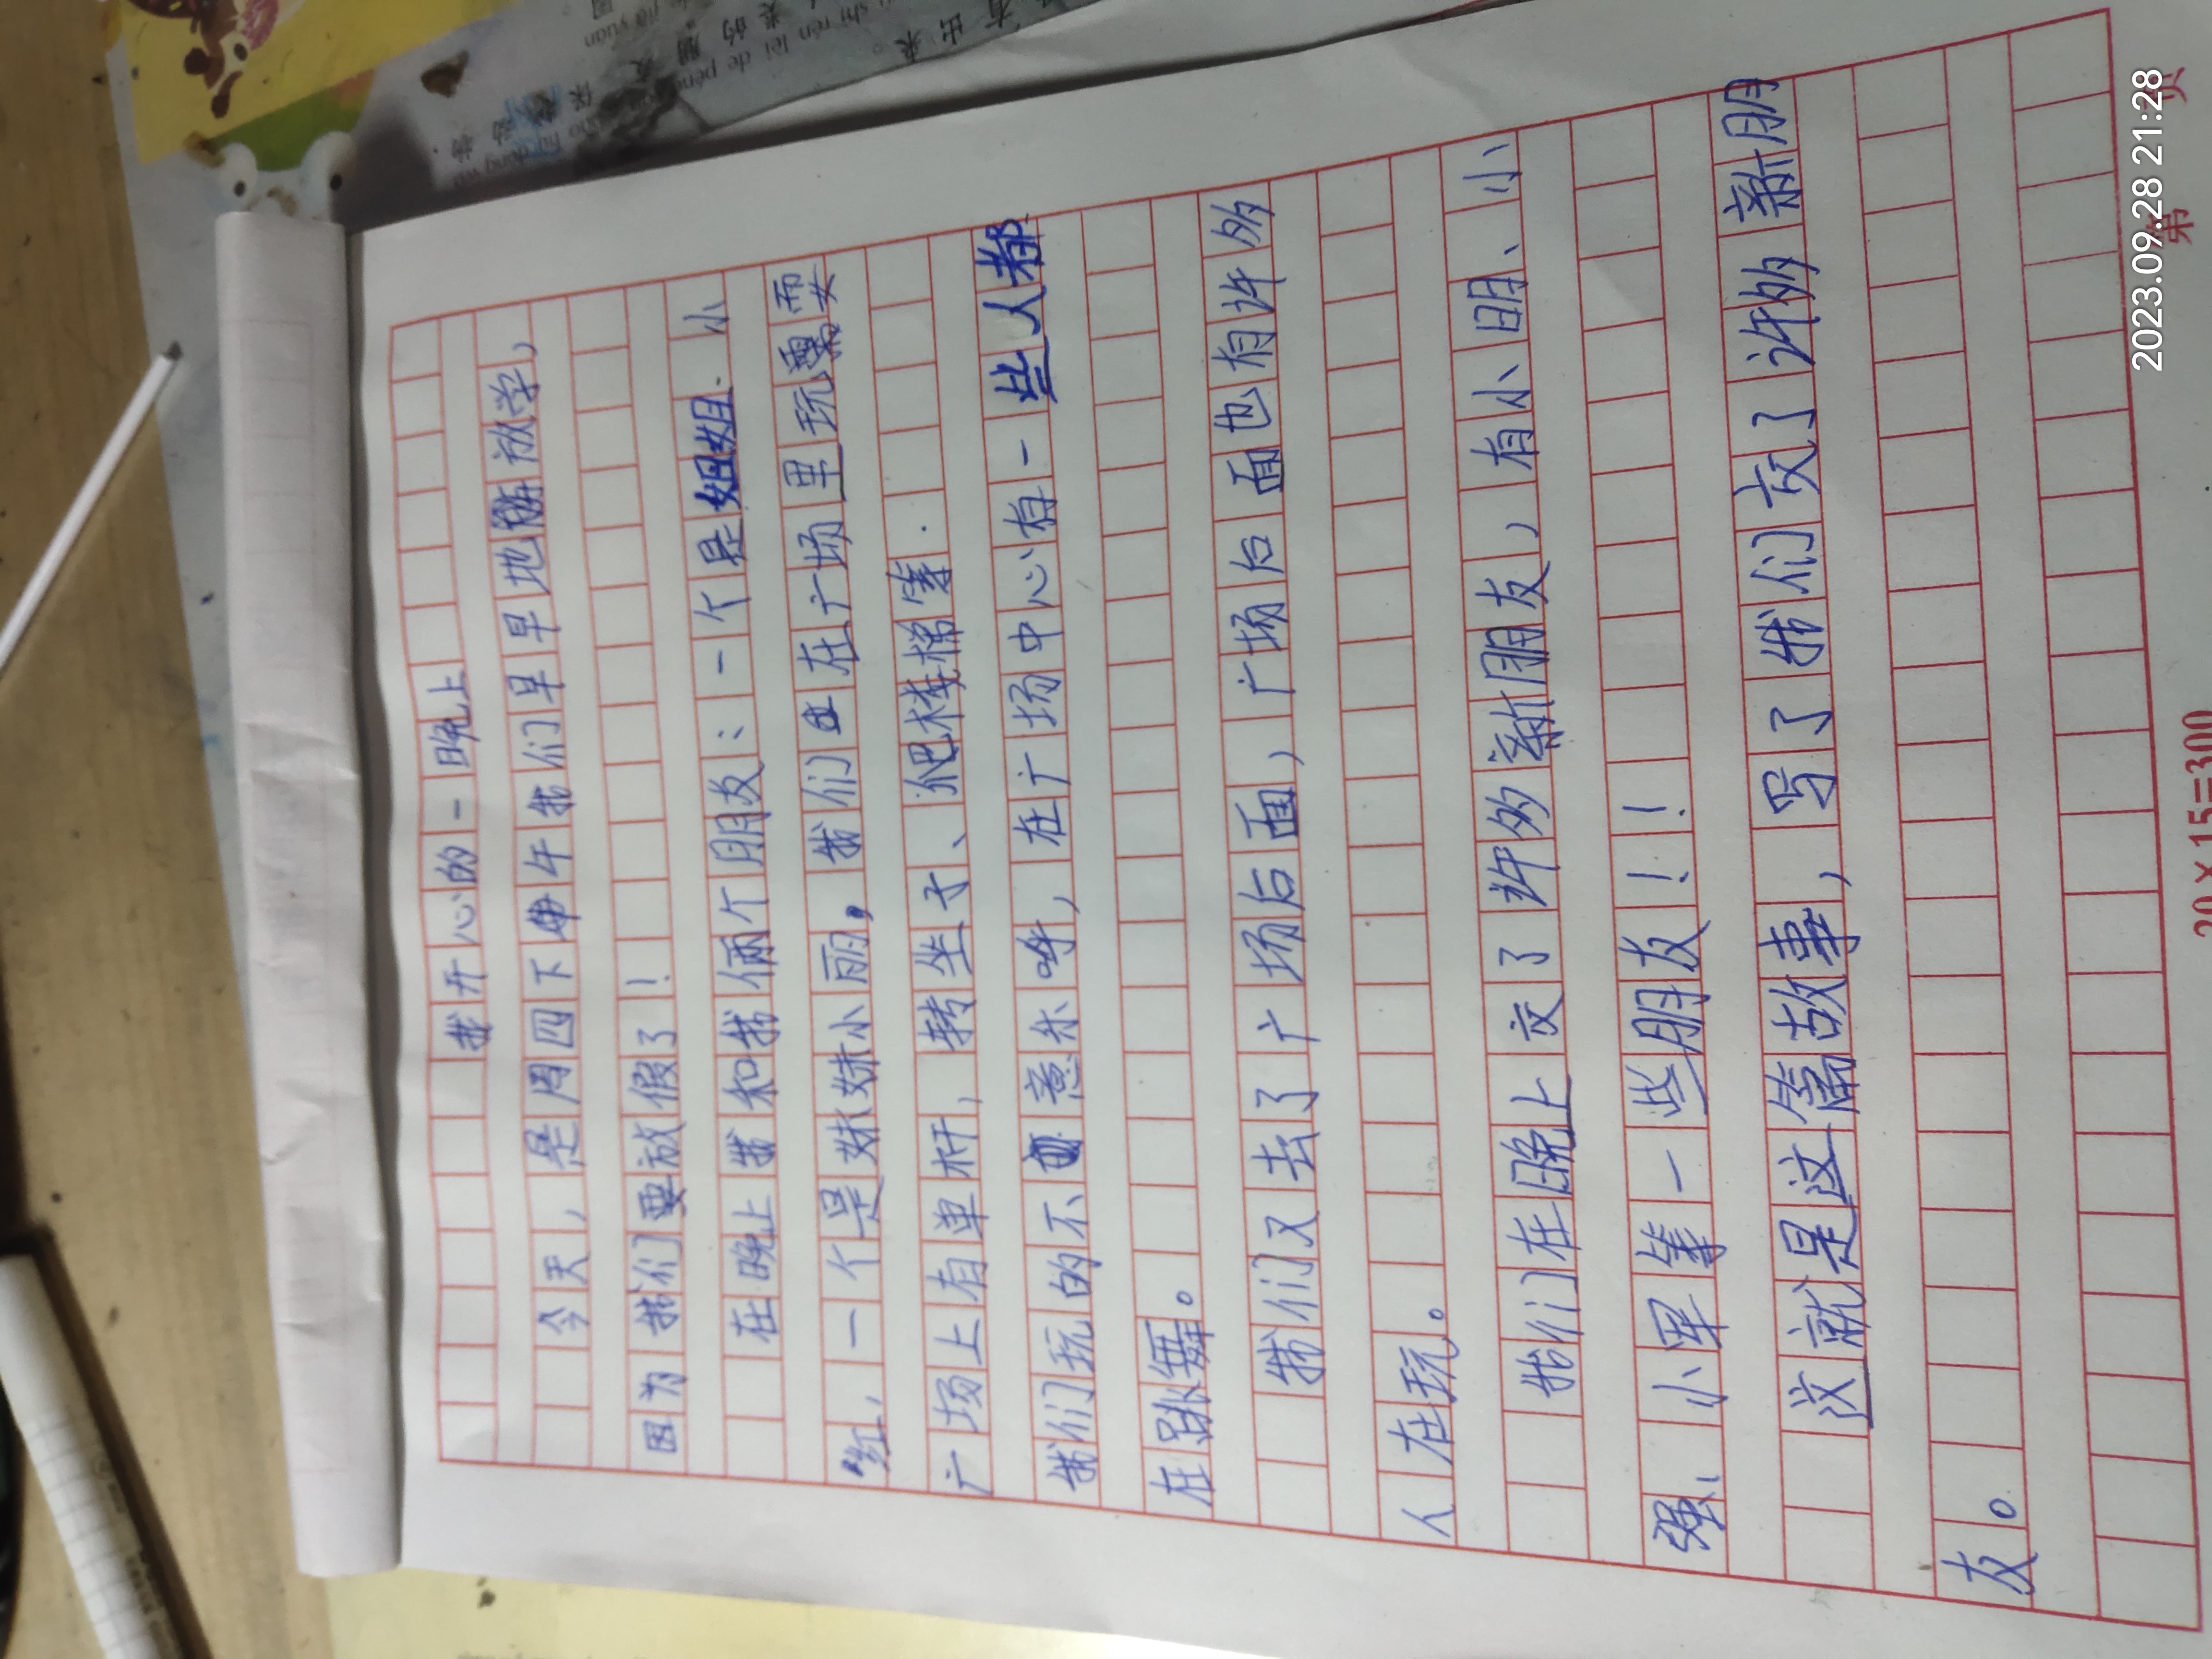 我开心的一晚上
今天，是周四下午我们早早地放学，
因为我们要放假了！
在晚上我和我俩个朋友：一个是姐姐小
红，一个是妹妹小丽，我们在广场里玩耍
广场上有单杆，转坐子、爬楼梯等．
我们玩的不意乐呼，在广场中心有一些人都
在跳舞。
我们又去了广场后面，广场后面也有许多
人在玩。
我们在晚上交了许多新朋友，有小明、小
强、小军等一些朋友！！！
这就是这篇故事，写了我们交了许多新朋
友。
20×15=300
第 页
2023.09.28 21:28